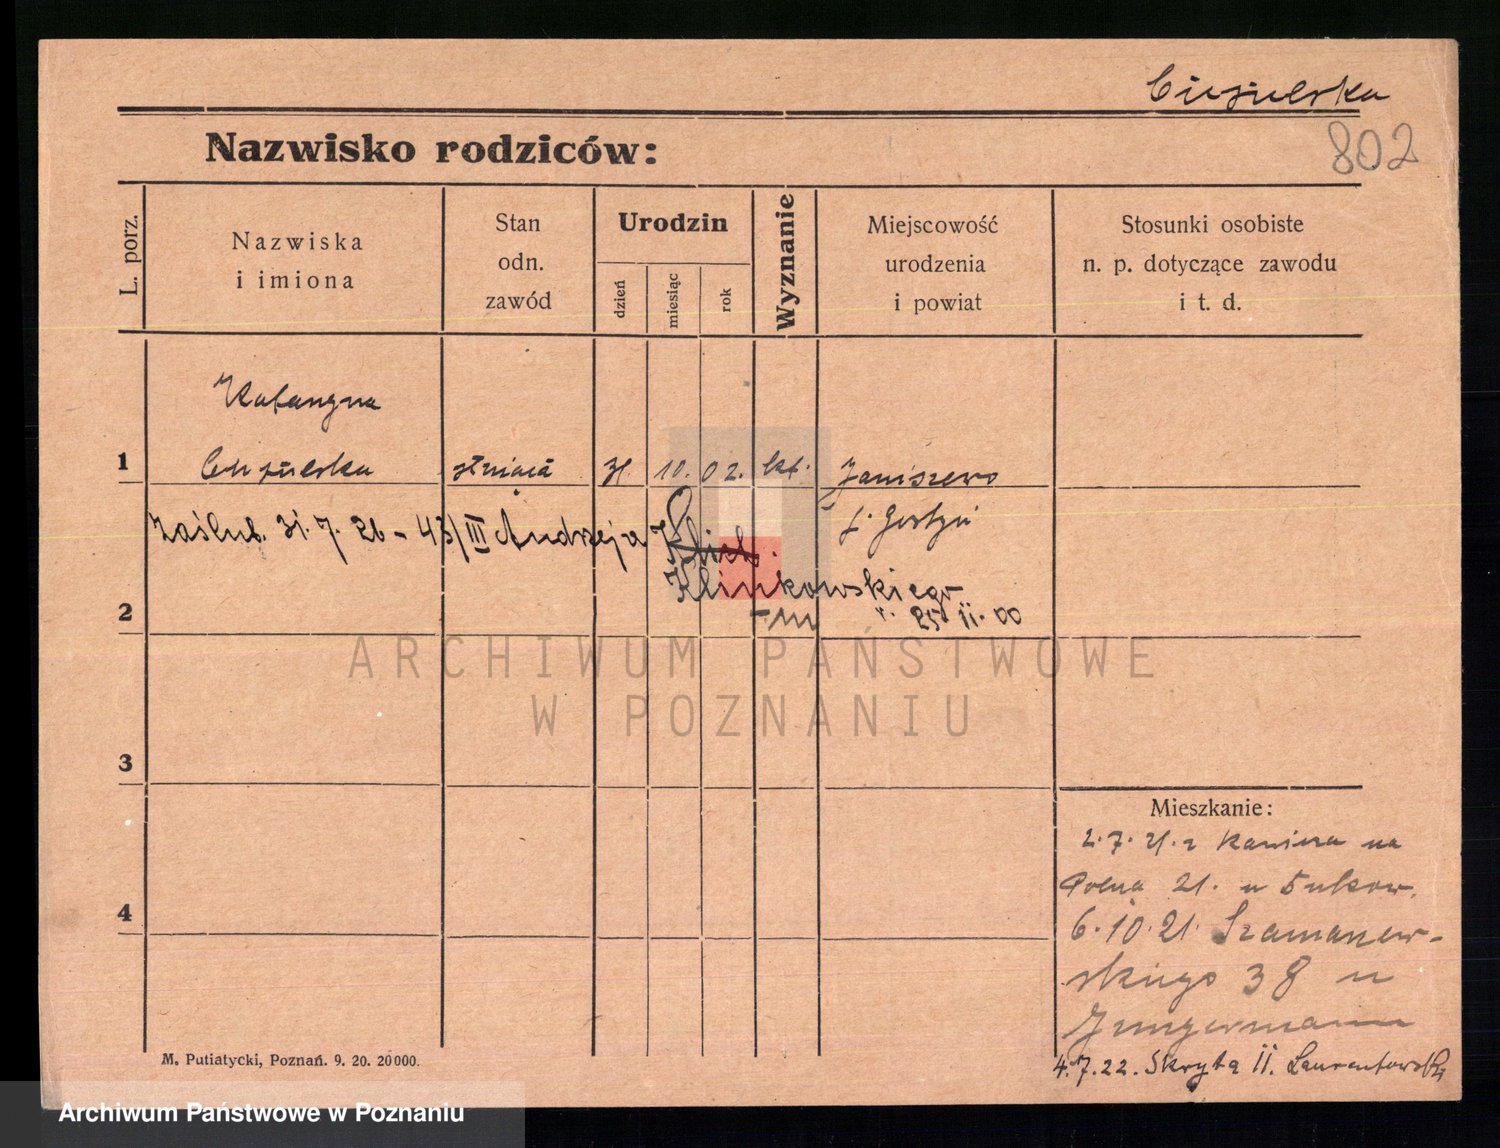 Ciesielska
802
Nazwisko rodziców:
L. porz.
Nazwiska
i imiona
Stan
odn.
zawód
Urodzin
dzień
miesiąc
rok
Wyznanie
Miejscowość
urodzenia
i powiat
Stosunki osobiste
n. p. dotyczące zawodu
i t. d.
Katarzyna
1 służąca 31. 10. 02. kat. Janiszewo
Zaślub. 31. 7. 26 - 43/III Andrzeja
Klinkowskiego
2 25 11. 00
3
4
Mieszkanie:
2. 7. 21. z na
Polna 21. u
6. 10. 21. Szamarzew-
skiego 38 u
Jungermann
4. 7. 22. Skryta 11.
M. Putiatycki, Poznań. 9. 20. 20000.
ARCHIWUM PAŃSTWOWE
W POZNANIU
Archiwum Państwowe w Poznaniu